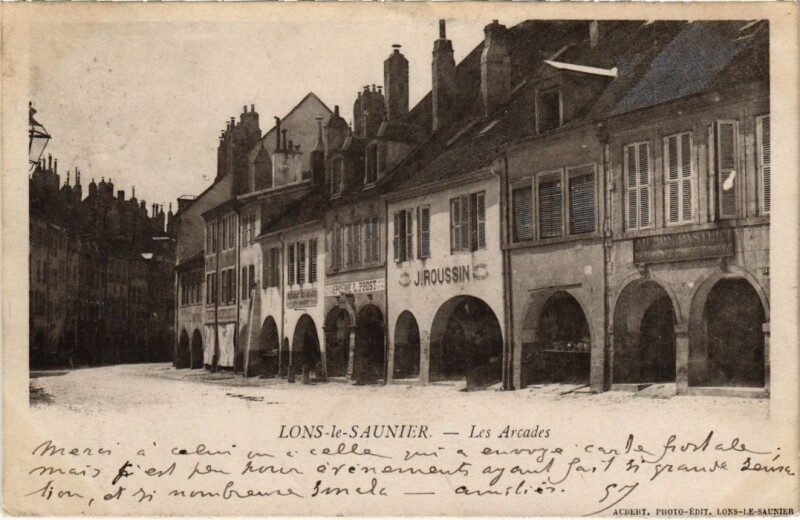 J. ROUSSIN
EPICERIE L. PROST
LONS-le-SAUNIER. — Les Arcades
Merci à celui ou à celle qui a envoyé carte postale,
mais c'est peu pour évènements ayant fait si grande sensa
tion, et si nombreuse —
AUBERT, PHOTO-ÉDIT, LONS-LE-SAUNIER